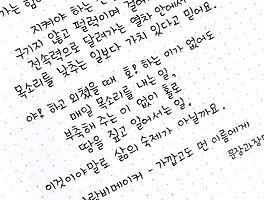 가는 힘
지켜야 하는
구기지 않고 펄럭이며 걸어
전속력으로 달려가는 열차 안에서
목소리를 낮추는 일보다 가치 있다고 믿어요.
야! 하고 외쳤을 때 호! 하는 이가 없어도
매일 목소리를 내는 일,
부축해 주는 이 없이 홀로
땅을 짚고 일어서는 일.
이것이야말로 삶의 숙제가 아닐까요.
란비메이커 - 가깝고도 먼 이름에게
문장과장